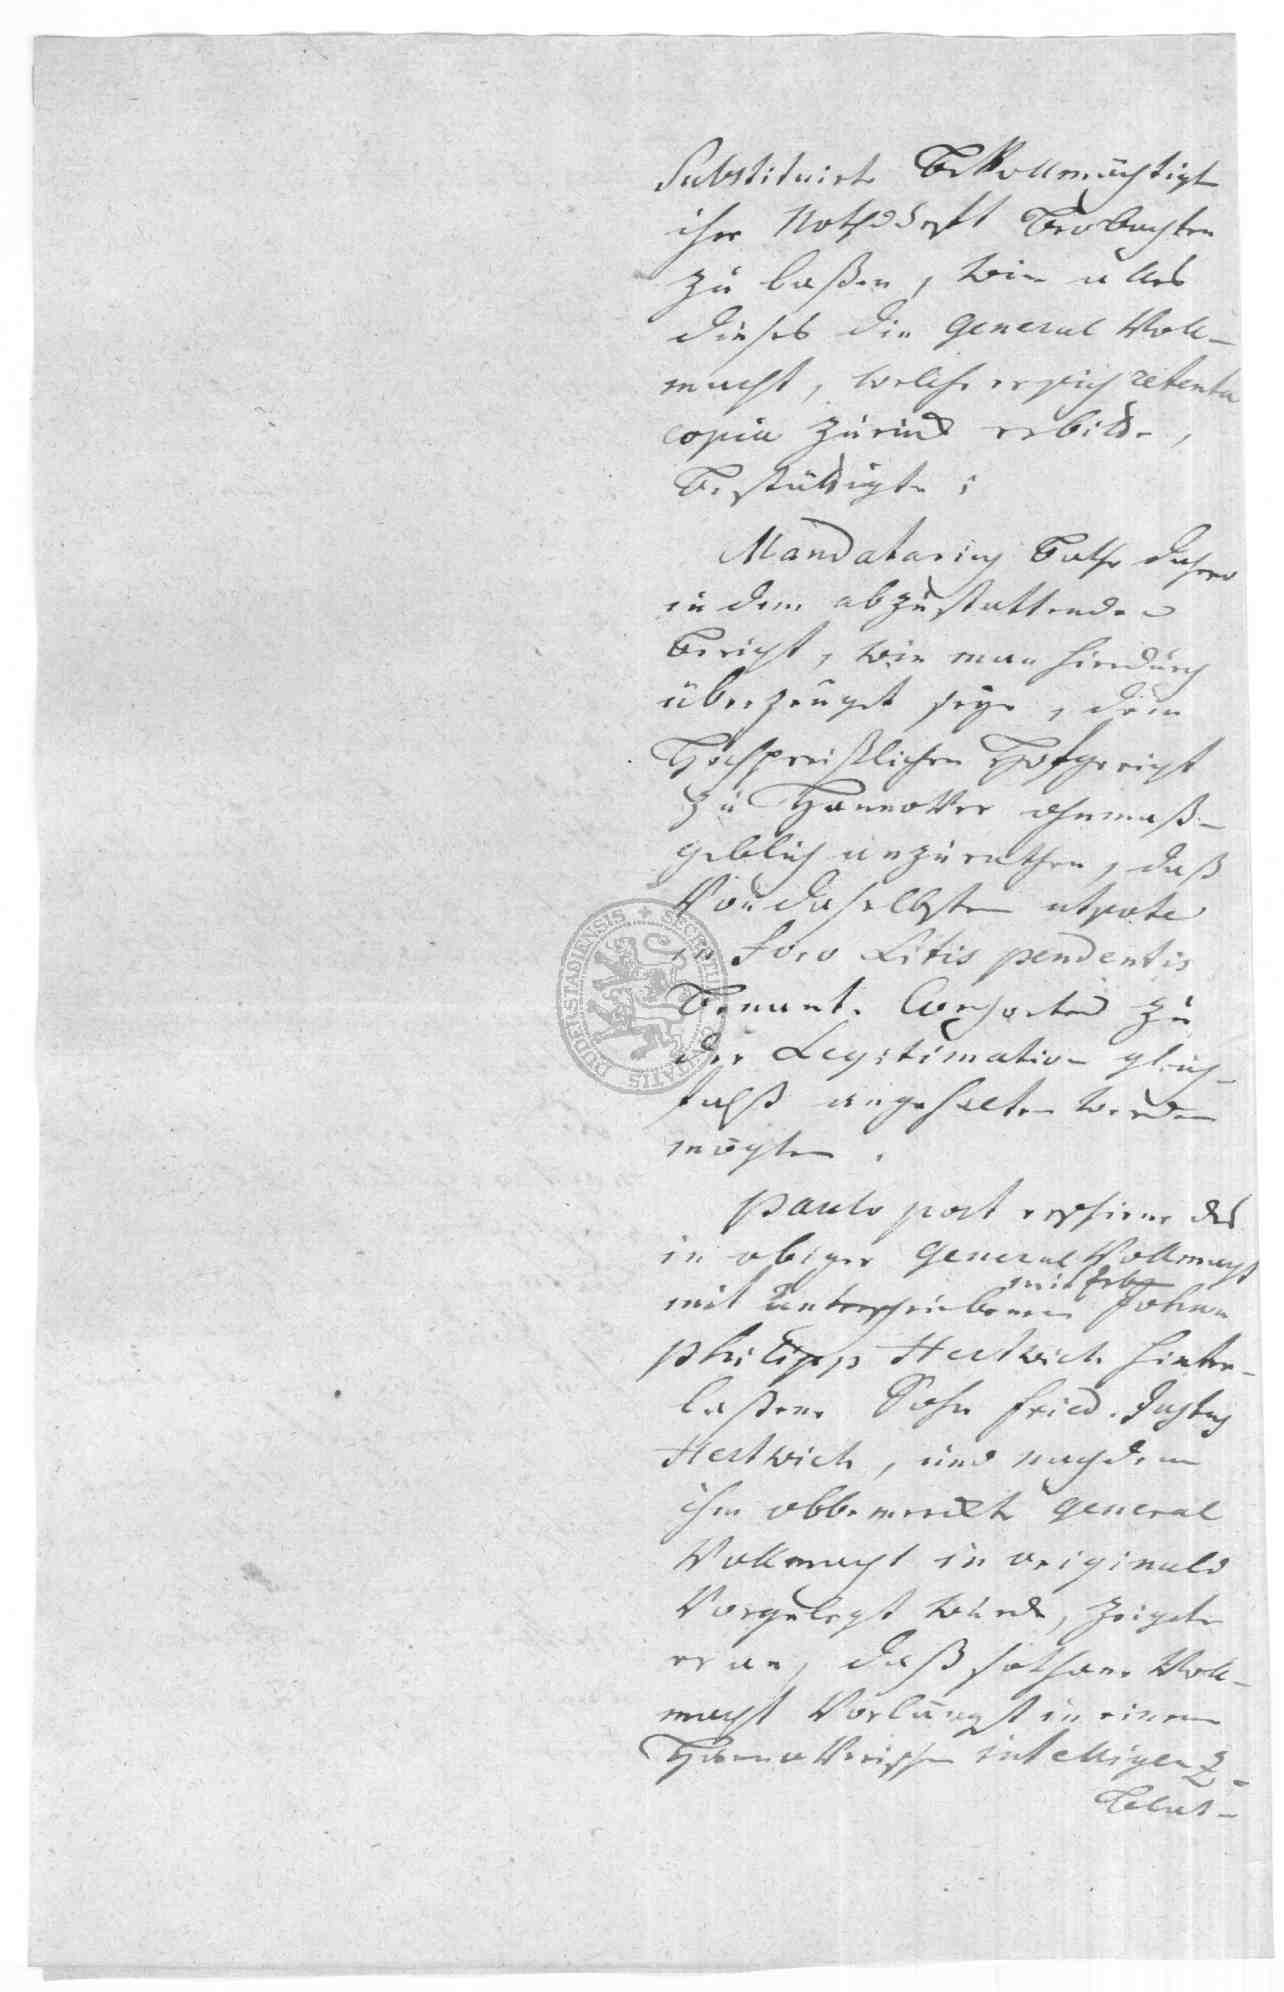 Substituirte Bevollmächtigte
ihre Nothdurfft beobachten
zu laßen, wie alles
dieses die General Voll-
macht, welche er sich retenta
copia zurück erbitte,
bestättigte;
Mandatarius bathe dahero
in dem abzustattenden
Bericht, wie man hierdurch
überzeuget seye, dem
Hochpreißlichen Hofgericht
zu Hannover ohnmaß-
geblich anzurathen, daß
Von daselbsten utpote
in Foro Litis pendentis
benant. Consorten zu
der Legitimation gleich-
falß angehalten werden
mögten.
Paulo post erschiene des
in obiger General Vollmacht
mit unterschriebenen Johann
Philipp Hertwich hinter-
laßene Sohn Fried. Justus
Hertwich, und nachdem
ihm obbemerckte General
Vollmacht in originali
Vorgelegt wurde, zeigete
er an, daß sothane Voll-
macht Vorlängst in einem
Hannoverischen intelligenz-
blat-
SECRETUM CIVITATIS DUDERSTADIENSIS